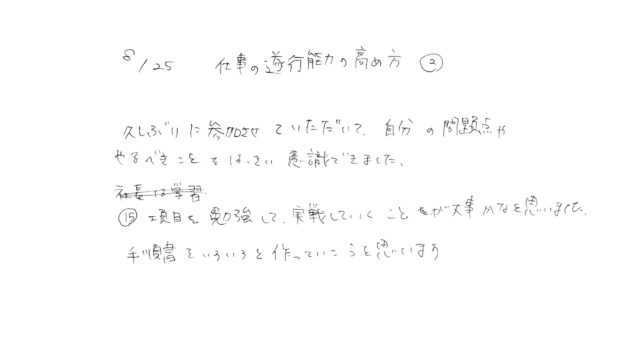 8/25 仕事の遂行能力の高め方 ②
久しぶりに参加させていただいて、自分の問題点や
やるべきことをはっきい意識できました。
社長は学習
⑮項目を勉強して、実戦していくことをが大事かなと思いました。
手順書をいろいろと作っていこうと思います